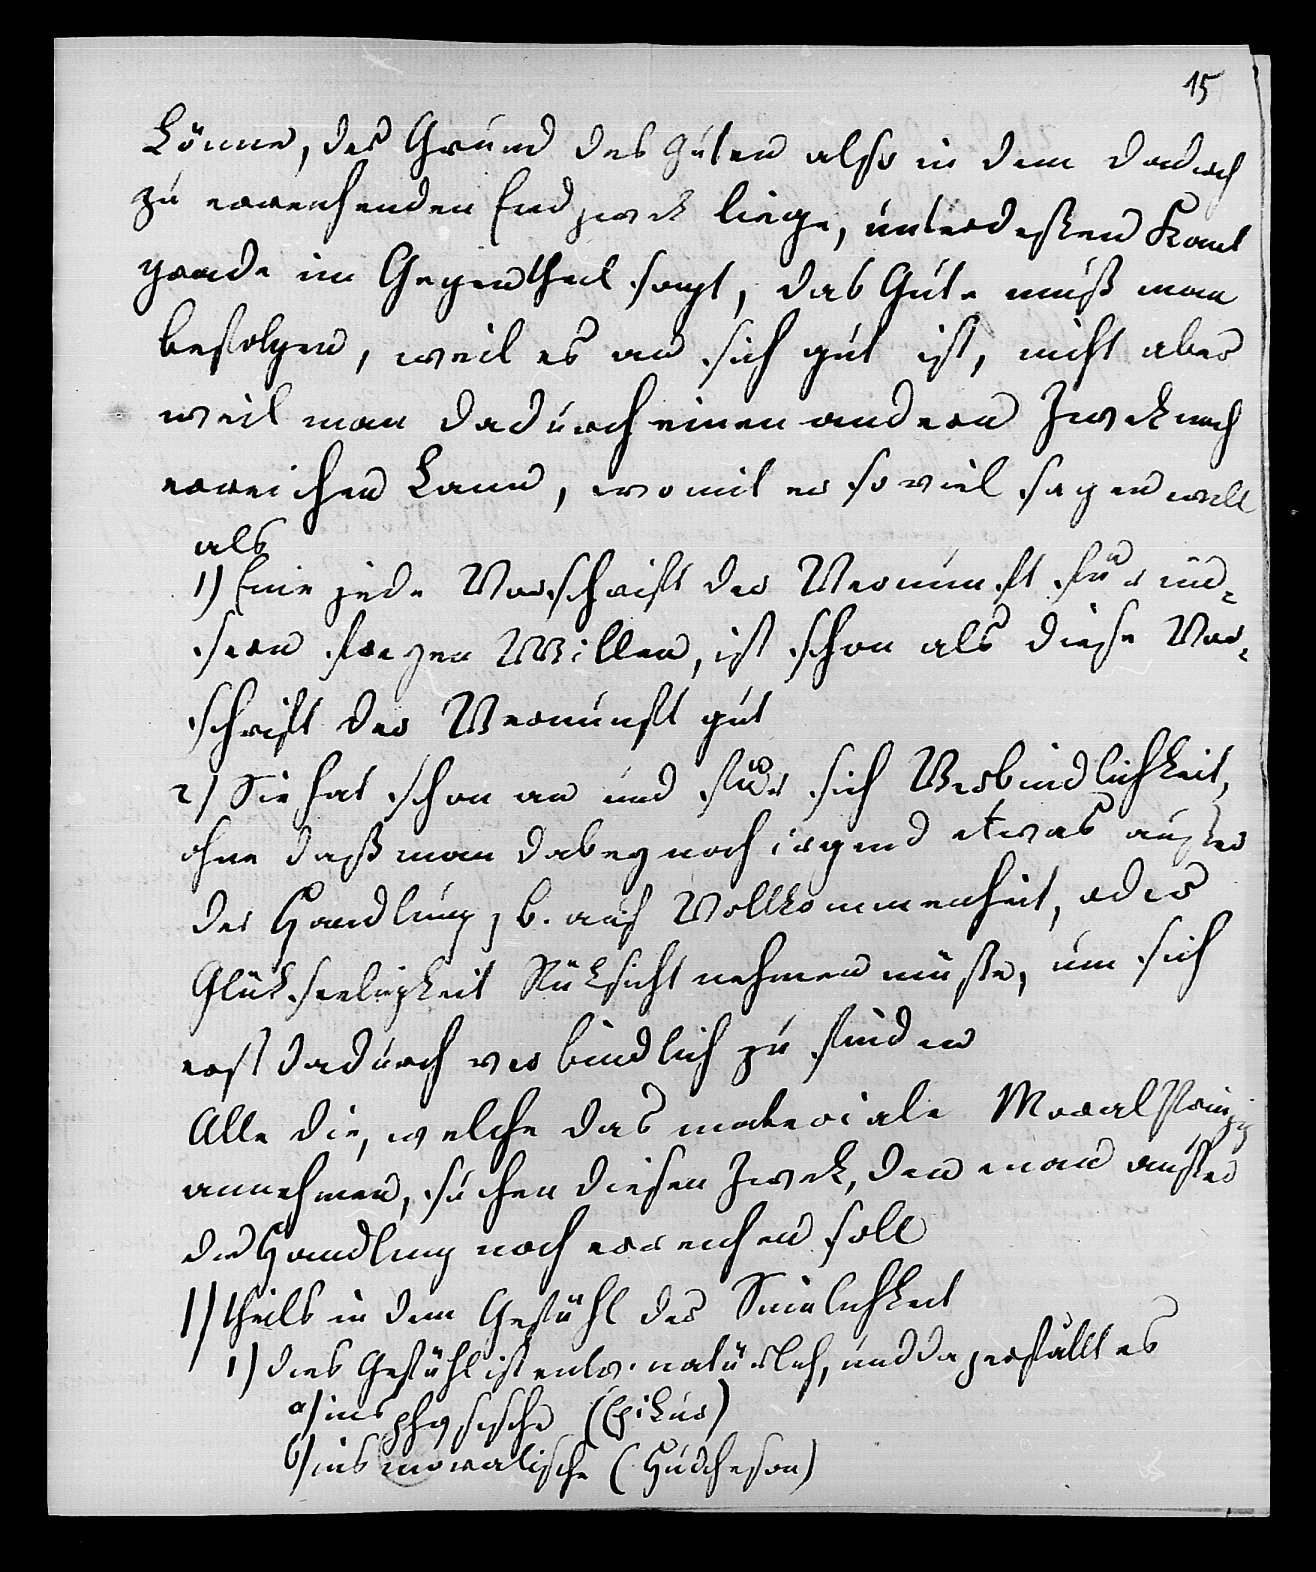 15
könne, der Grund des Guten also in dem dadurch
zu erreichenden Endzwek liege, unterdeßen Kant
grade im Gegentheil sagt, das Gute muß man
befolgen, weil es an sich gut ist, nicht aber
weil man dadurch einen andern Zwek noch
erreichen kann, womit er so viel sagen will
als
1) Eine jede Vorschrift der Vernunft für un¬
sern freyen Willen, ist schon als diese Vor¬
schrift der Vernunft gut
2) Sie hat schon an und für sich Verbindlichkeit,
ohne daß man dabey noch irgend etwas außer
der Handlung z b. auf Vollkommenheit, oder
Glükseeligkeit Rüksicht nehmen müßte, um sich
erst dadurch verbindlich zu finden
Alle die, welche das materiale Moral Prinzip
annehmen, suchen diesen Zwek, den man außer
der Handlung noch erreichen soll
1) theils in dem Gefühl der Sinnlichkeit
1) dies Gefühl ist entw. natürlich, und da zerfällt es
a) ins physische (Epikur)
b) ins moralische (Hudcheson)